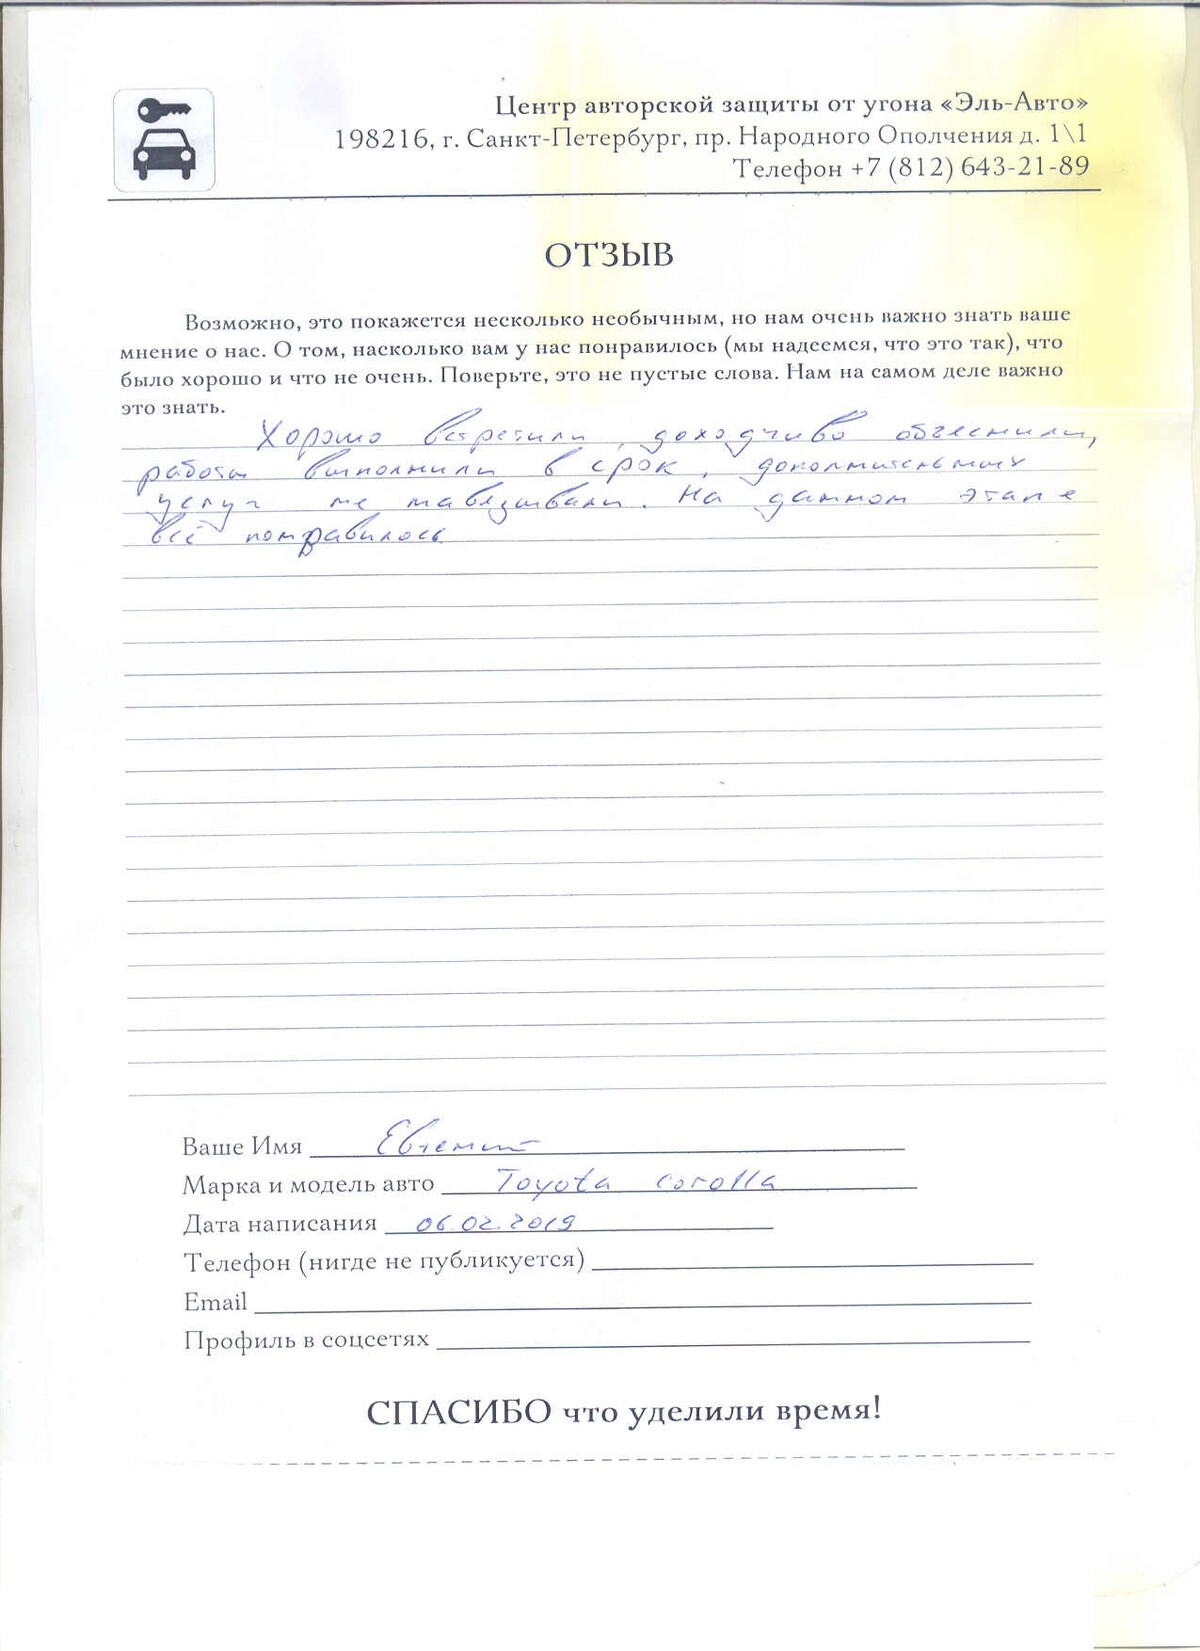 Центр авторской защиты от угона «Эль-Авто»
198216, г. Санкт-Петербург, пр. Народного Ополчения д. 1\1
Телефон +7 (812) 643-21-89
ОТЗЫВ
Возможно, это покажется несколько необычным, но нам очень важно знать ваше
мнение о нас. О том, насколько вам у нас понравилось (мы надеемся, что это так), что
было хорошо и что не очень. Поверьте, это не пустые слова. Нам на самом деле важно
это знать.
Хорошо встретили, доходчиво объяснили,
работы выполнили в срок, дополнительных
услуг не навязывали. На данном этапе
всё понравилось
Ваше Имя Евгений
Марка и модель авто Toyota corolla
Дата написания 06.02.2019
Телефон (нигде не публикуется)
Email
Профиль в соцсетях
СПАСИБО что уделили время!